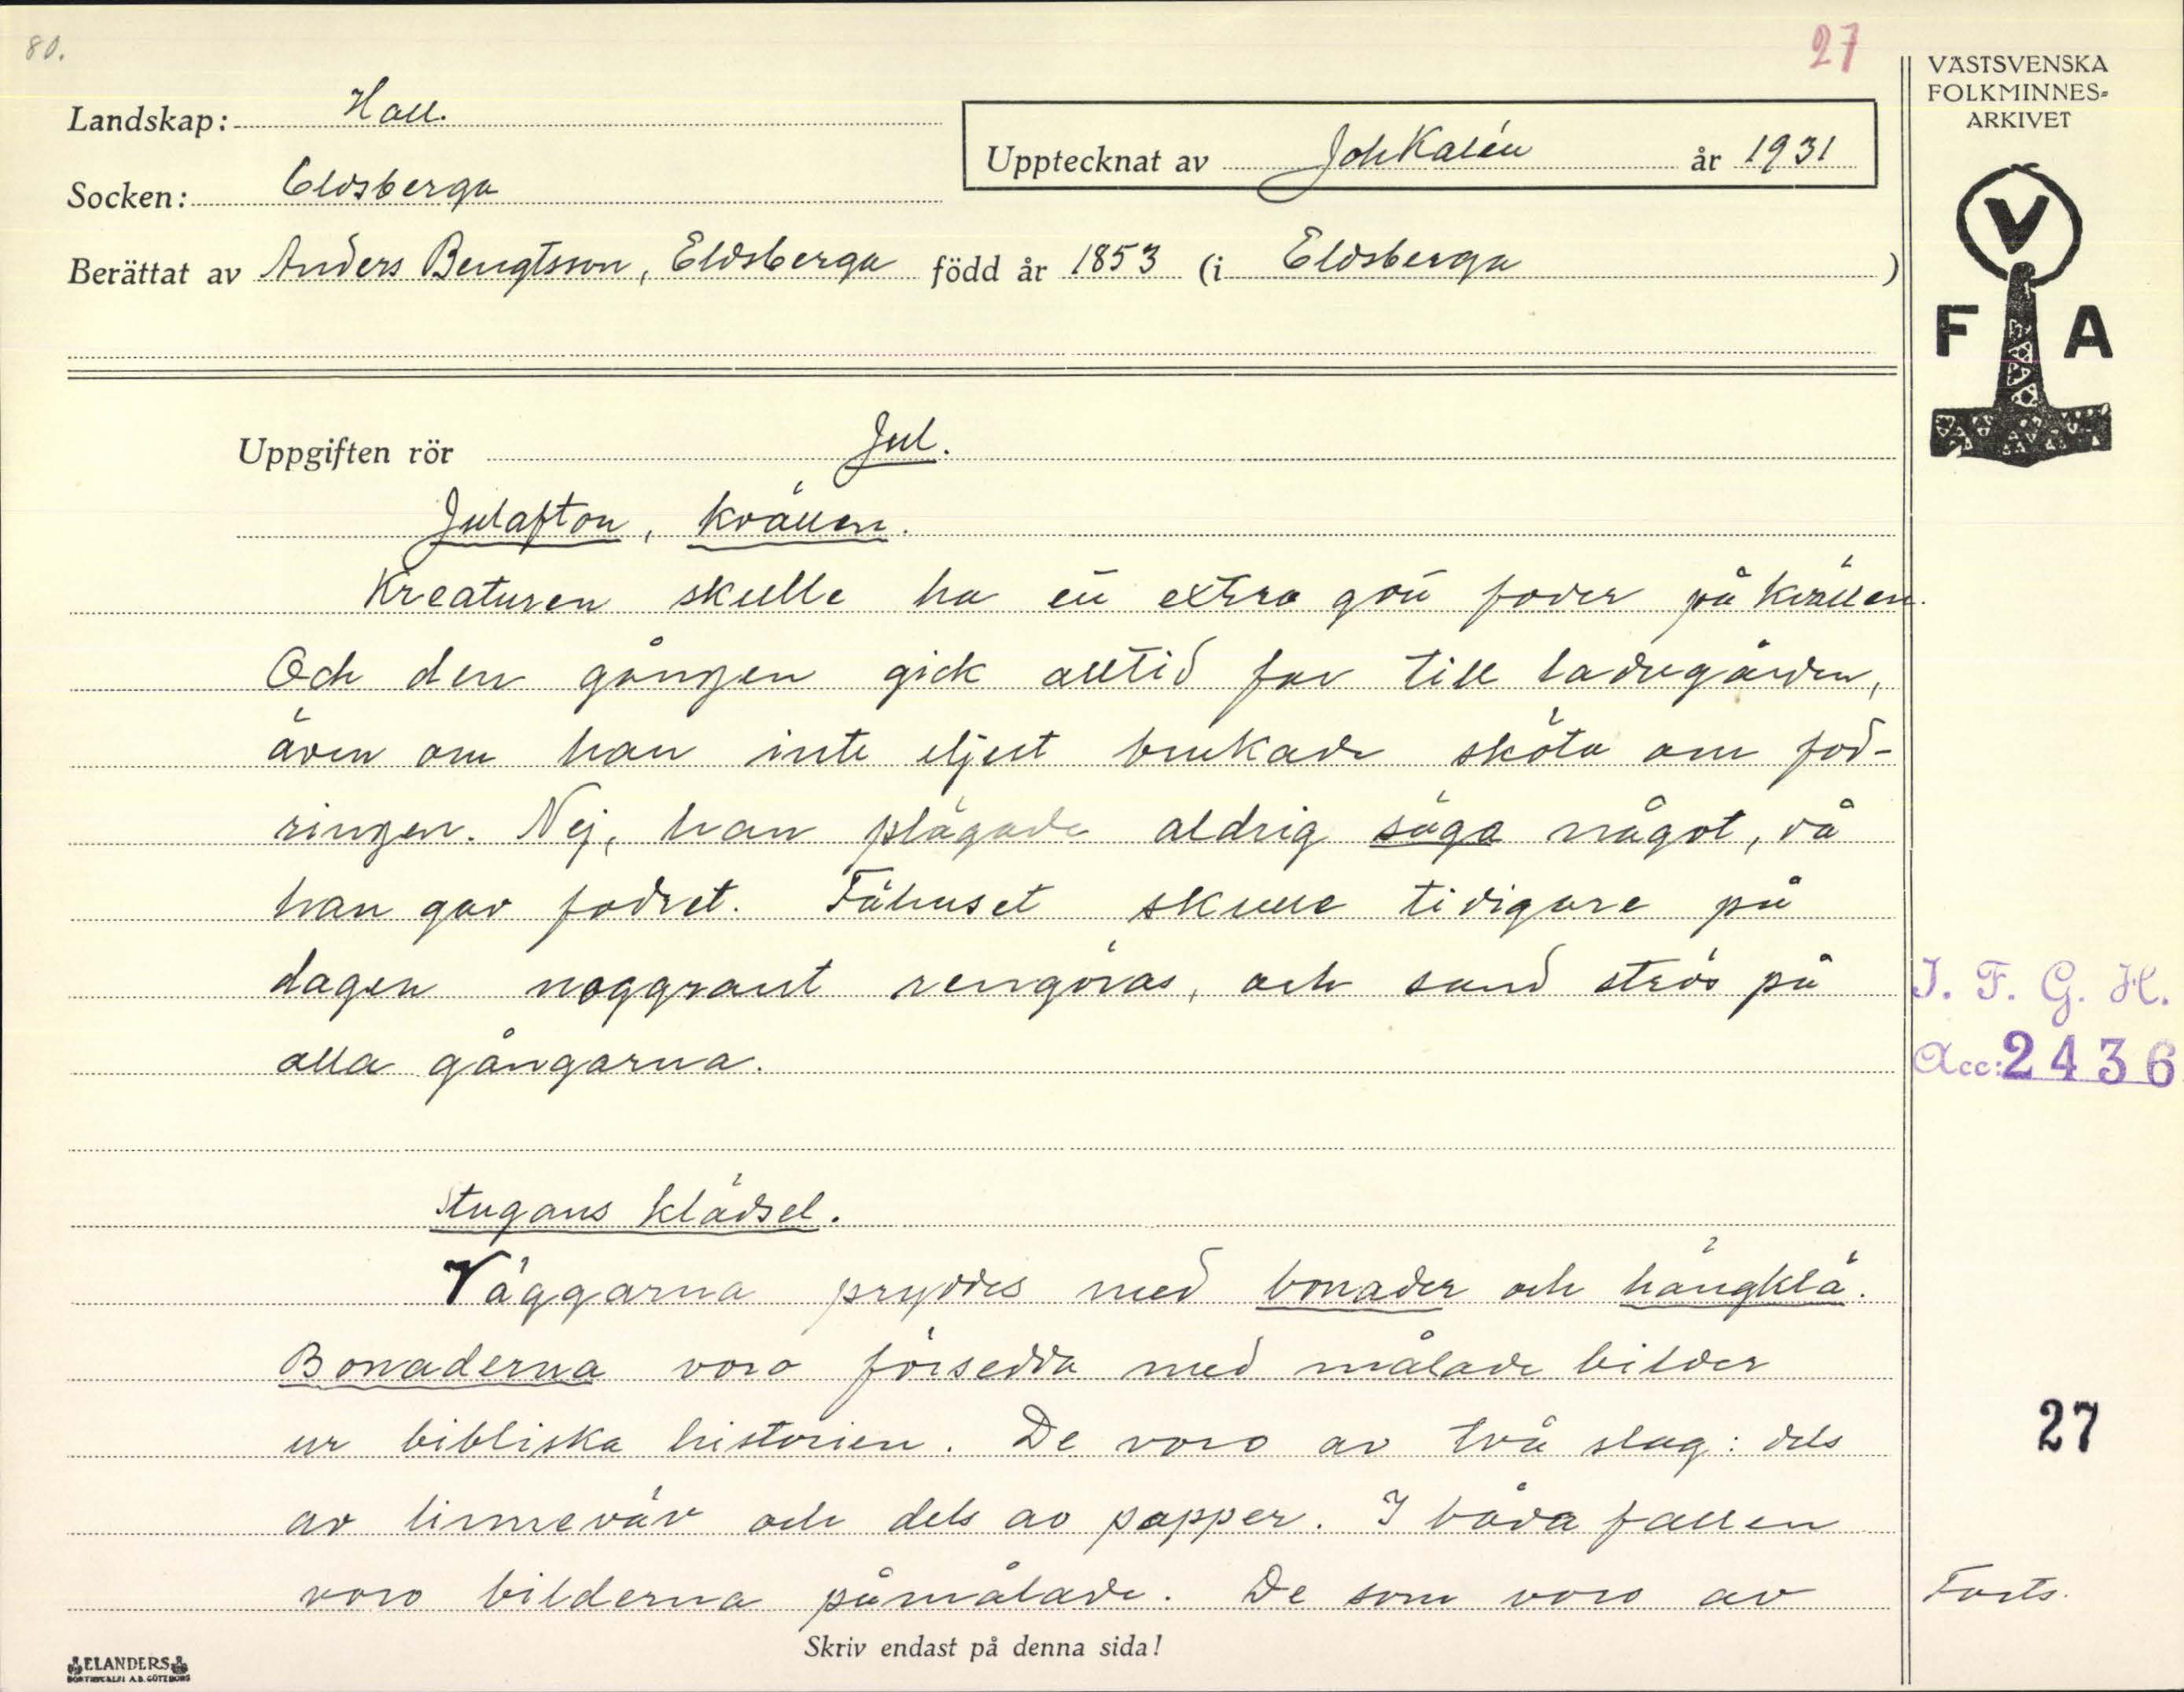 80.
27
VÄSTSVENSKA
FOLKMINNES=
ARKIVET
Landskap: Hall.
Upptecknat av Joh Kalén år 1931
Socken: Eldsberga
Berättat av Anders Bengtsson, Eldsberga född år 1853 (i Eldsberga )
V
F A
Uppgiften rör Jul.
Julafton, kvällen.
Kreaturen skulle ha en extra god foder på kvällen.
Och den gången gick alltid far till ladugården,
även om han inte eljest brukade sköta om fod-
ringen. Nej, han plägade aldrig säga något, då
han gav fodret. Fähuset skulle tidigare på
dagen noggrant rengöras, och sand strös på
alla gångarna.
I. F. G. H.
Acc: 2436
Stugans klädsel.
Väggarna pryddes med bonader och hängklä.
Bonaderna voro försedda med målade bilder
ur bibliska historien. De voro av två slag: dels
27
av linneväv och dels av papper. I båda fallen
voro bilderna påmålade. De som voro av
Forts.
Skriv endast på denna sida!
ELANDERS
BOKTRYCKERI A.B. GÖTEBORG